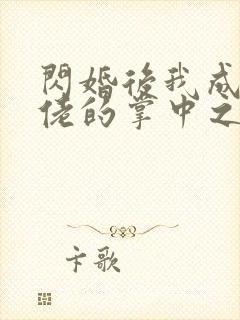 閃婚後我成
佬的掌中之
卡歌